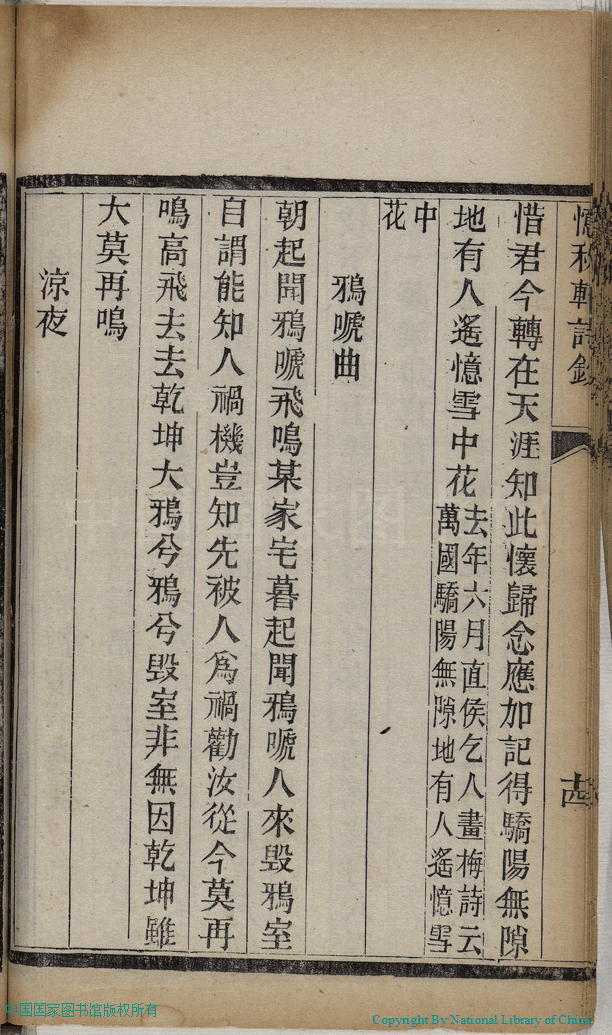 惜君今轉在天涯知此懷歸念應加記得驕陽無隙
地有人遙憶雪中花去年六月直侯乞人畫梅詩云萬國驕陽無隙地有人遙憶雪
中花
鴉嗁曲
朝起聞鴉嗁飛鳴某家宅暮起聞鴉嗁人來毀鴉室
自謂能知人禍機豈知先被人爲禍勸汝從今莫再
鳴高飛去去乾坤大鴉兮鴉兮毀室非無因乾坤雖
大莫再鳴
涼夜
中国国家图书馆版权所有
Copyright By National Library of China